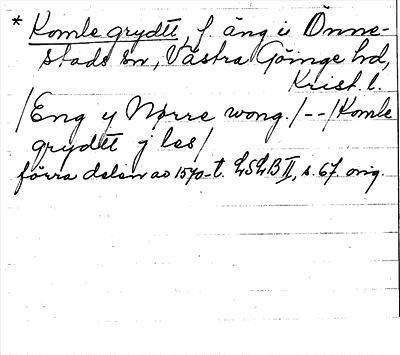 * Komle grydtt, f. äng i Önne-
stads sn, Västra Göinge hd,
Krist. l.
/Eng y Nørre wong./--/Komle
grydtt j las/
förra delen av 1570-t. LSLB II, s. 67. orig.